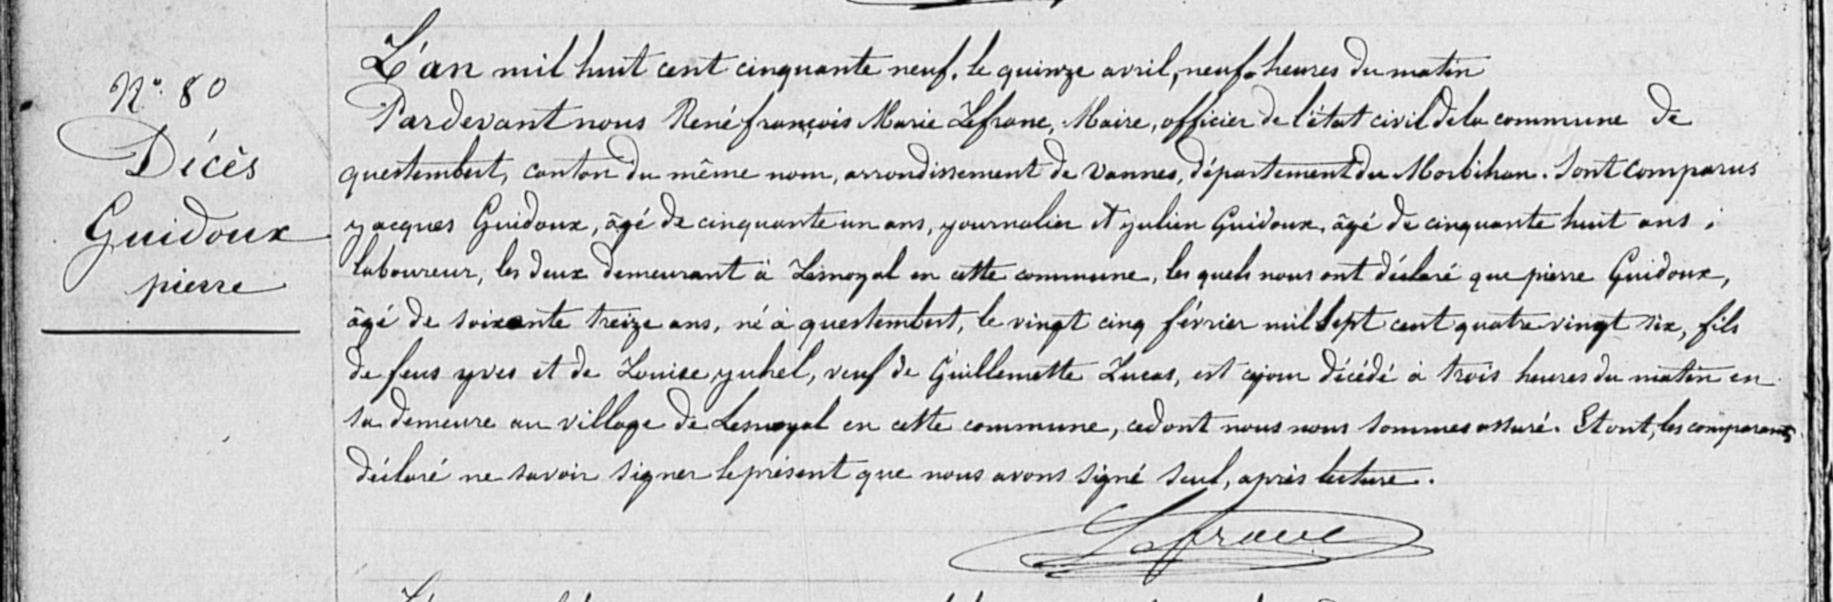 N° 80
Décès
Guidoux
pierre
L'an mil huit cent cinquante neuf, le quinze avril, neuf heures du matin
Pardevant nous René françois Marie Lefranc, Maire, officier de l'état civil de la commune de
questembert, canton du même nom, arrondissement de vannes, département du Morbihan. Sont comparus
jacques Guidoux, âgé de cinquante un ans, journalier et julien Guidoux, âgé de cinquante huit ans,
laboureur, les deux demeurant à Lesnoyal en cette commune, lesquels nous ont déclaré que pierre Guidoux,
âgé de soixante treize ans, né à questembert, le vingt cinq février mil sept cent quatre vingt six, fils
de feus yves et de Louise juhel, veuf de Guillemette Lucas, est cejour décédé à trois heures du matin en
sa demeure au village de Lesnoyal en cette commune, cedont nous nous sommes assuré. Et ont, les comparants
déclaré ne savoir signer le présent que nous avons signé seul, après lecture.
Lefranc